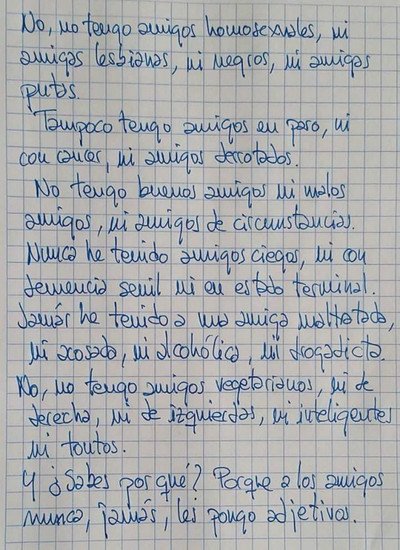 No, no tengo amigos homosexuales, ni
amigas lesbianas, ni negros, ni amigas
putas.
Tampoco tengo amigos en paro, ni
con cáncer, ni amigos derrotados.
No tengo buenos amigos ni malos
amigos, ni amigos de circunstancias.
Nunca he tenido amigos ciegos, ni con
demencia senil ni en estado terminal.
Jamás he tenido a una amiga maltratada,
ni acosada, ni alcohólica, ni drogadicta.
No, no tengo amigos vegetarianos, ni de
derecha, ni de izquierdas, ni inteligentes
ni tontos.
Y ¿Sabes por qué? Porque a los amigos
nunca, jamás, les pongo adjetivos.